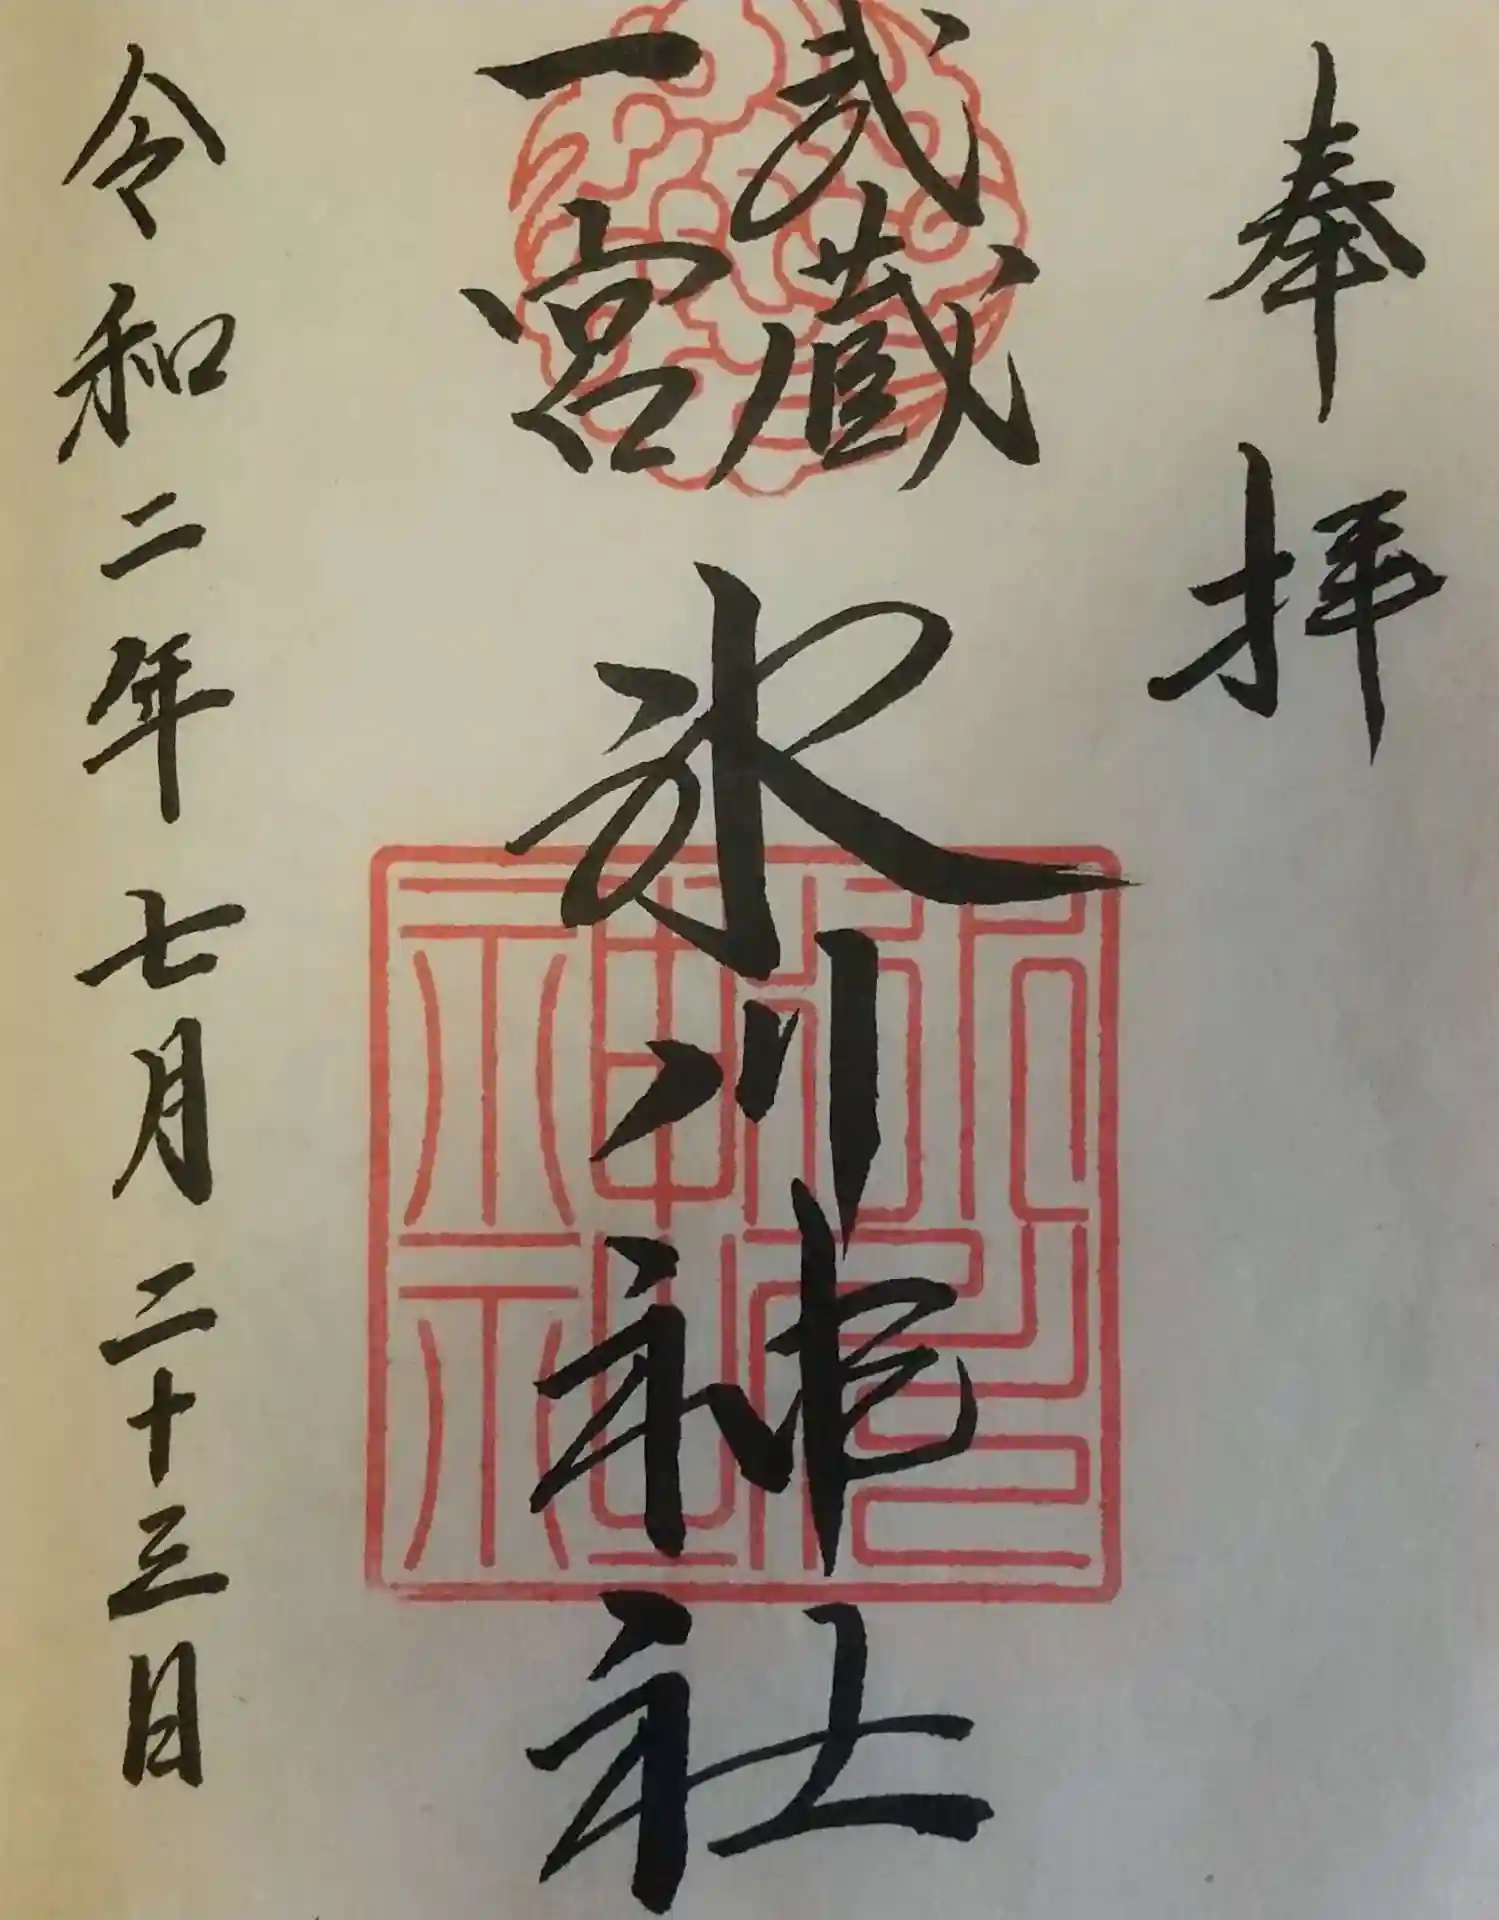 奉拝
武蔵
一宮
氷川神社
令和二年七月二十三日